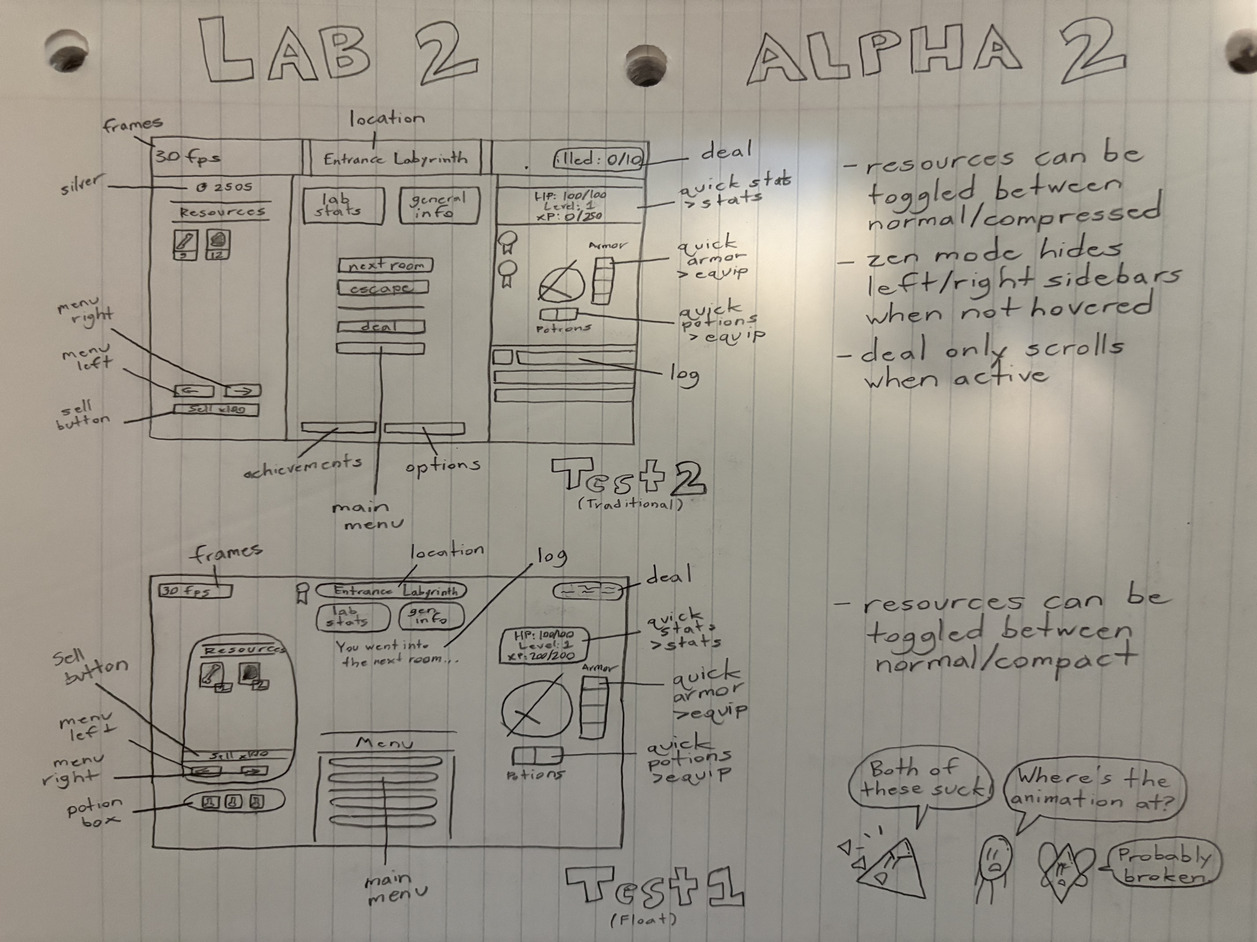 LAB 2
ALPHA 2
frames
location
30 fps
Entrance Labyrinth
illed: 0/10
deal
silver
2505
Resources
9
12
lab
stats
general
info
HP: 100/100
Level: 1
XP: 0/250
quick stats
> stats
Armor
quick
armor
> equip
next room
escape
deal
Potions
quick
potions
> equip
log
menu
right
menu
left
sell
button
←
→
Sell x100
achievements
options
main
menu
Test 2
(Traditional)
- resources can be
toggled between
normal/compressed
- zen mode hides
left/right sidebars
when not hovered
- deal only scrolls
when active
frames
location
log
deal
30 fps
Entrance Labyrinth
lab
stats
gen
info
You went into
the next room...
HP: 100/100
Level: 1
XP: 200/200
quick
stats
> stats
Armor
quick
armor
> equip
Potions
quick
potions
> equip
Sell
button
menu
left
menu
right
potion
box
Resources
Sell x100
←
→
Menu
main
menu
Test 1
(Float)
- resources can be
toggled between
normal/compact
Both of
these suck!
Where's the
animation at?
Probably
broken